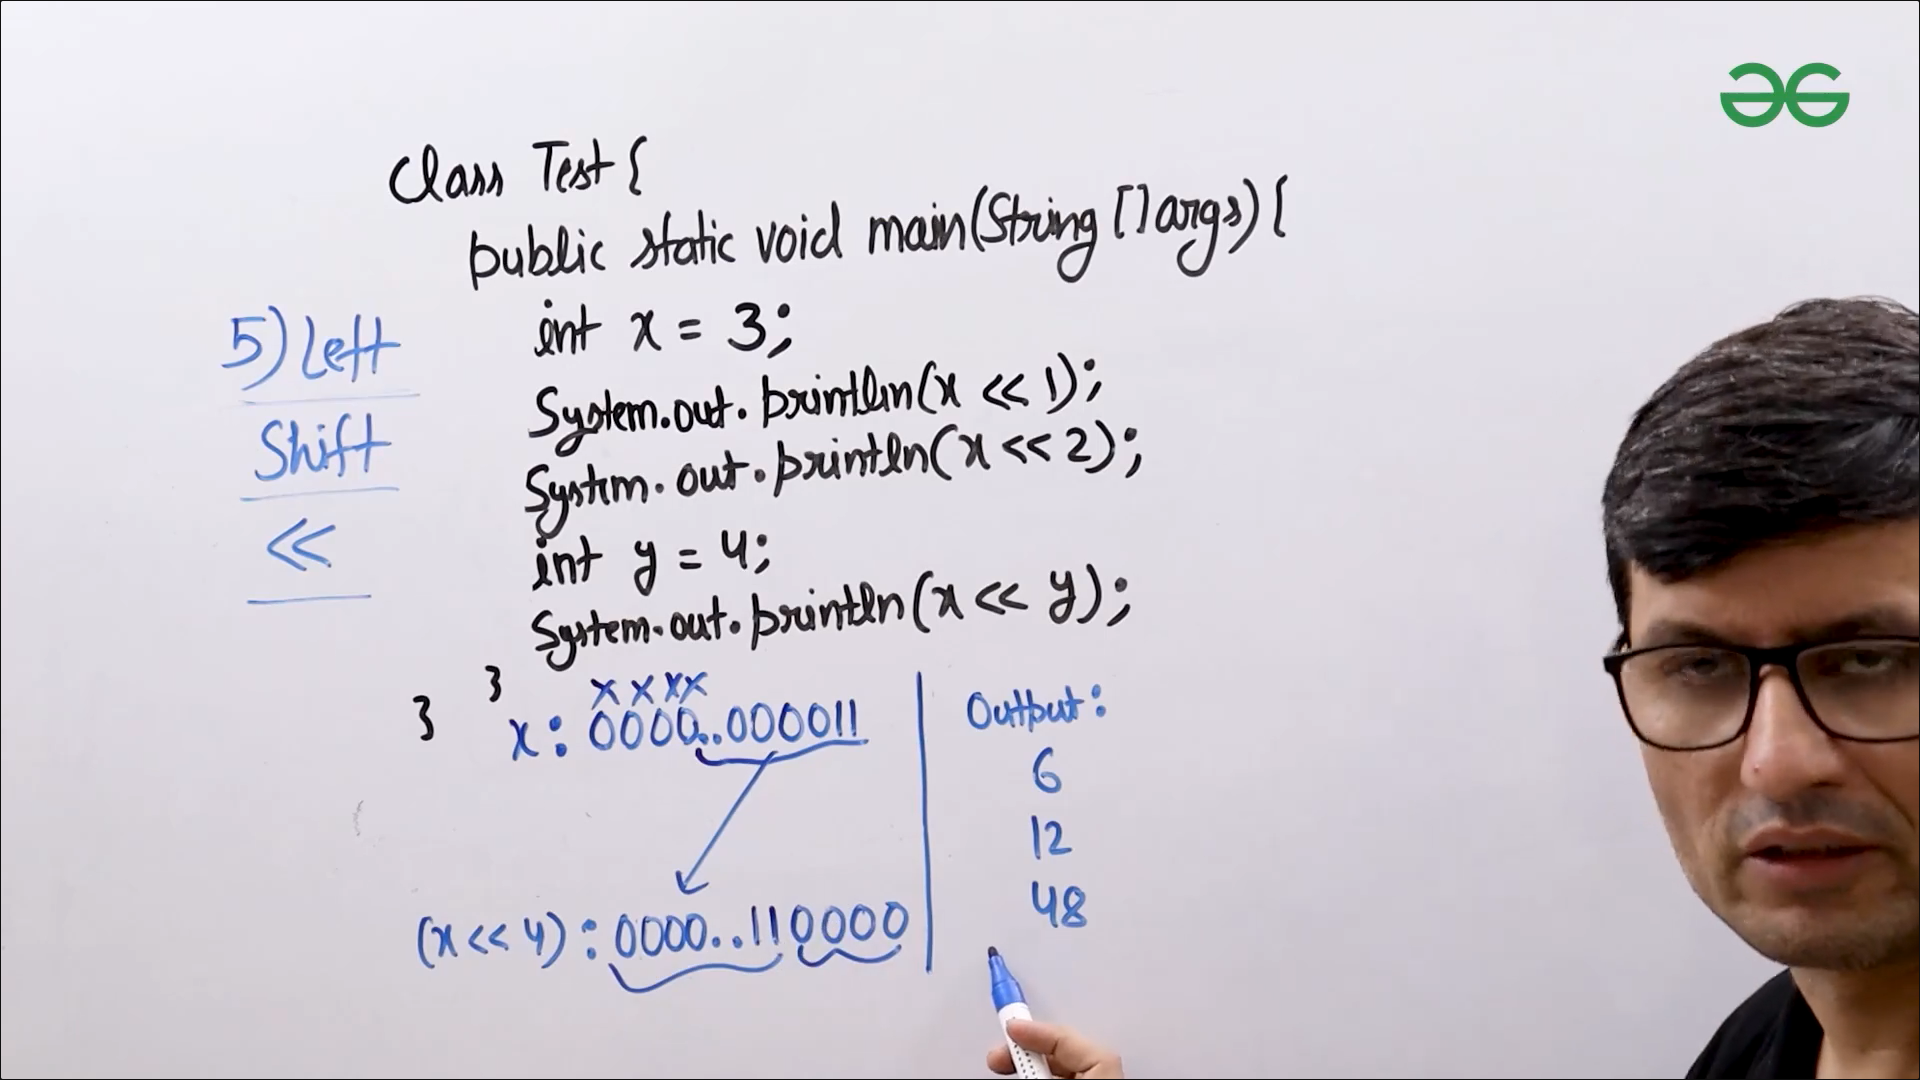 class Test {
public static void main(String [] args) {
int x = 3;
System.out.println(x << 1);
System.out.println(x << 2);
int y = 4;
System.out.println(x << y);
5) Left
Shift
<<
3 3
x x x x
x : 0000..000011
(x << y) : 0000..110000
Output:
6
12
48